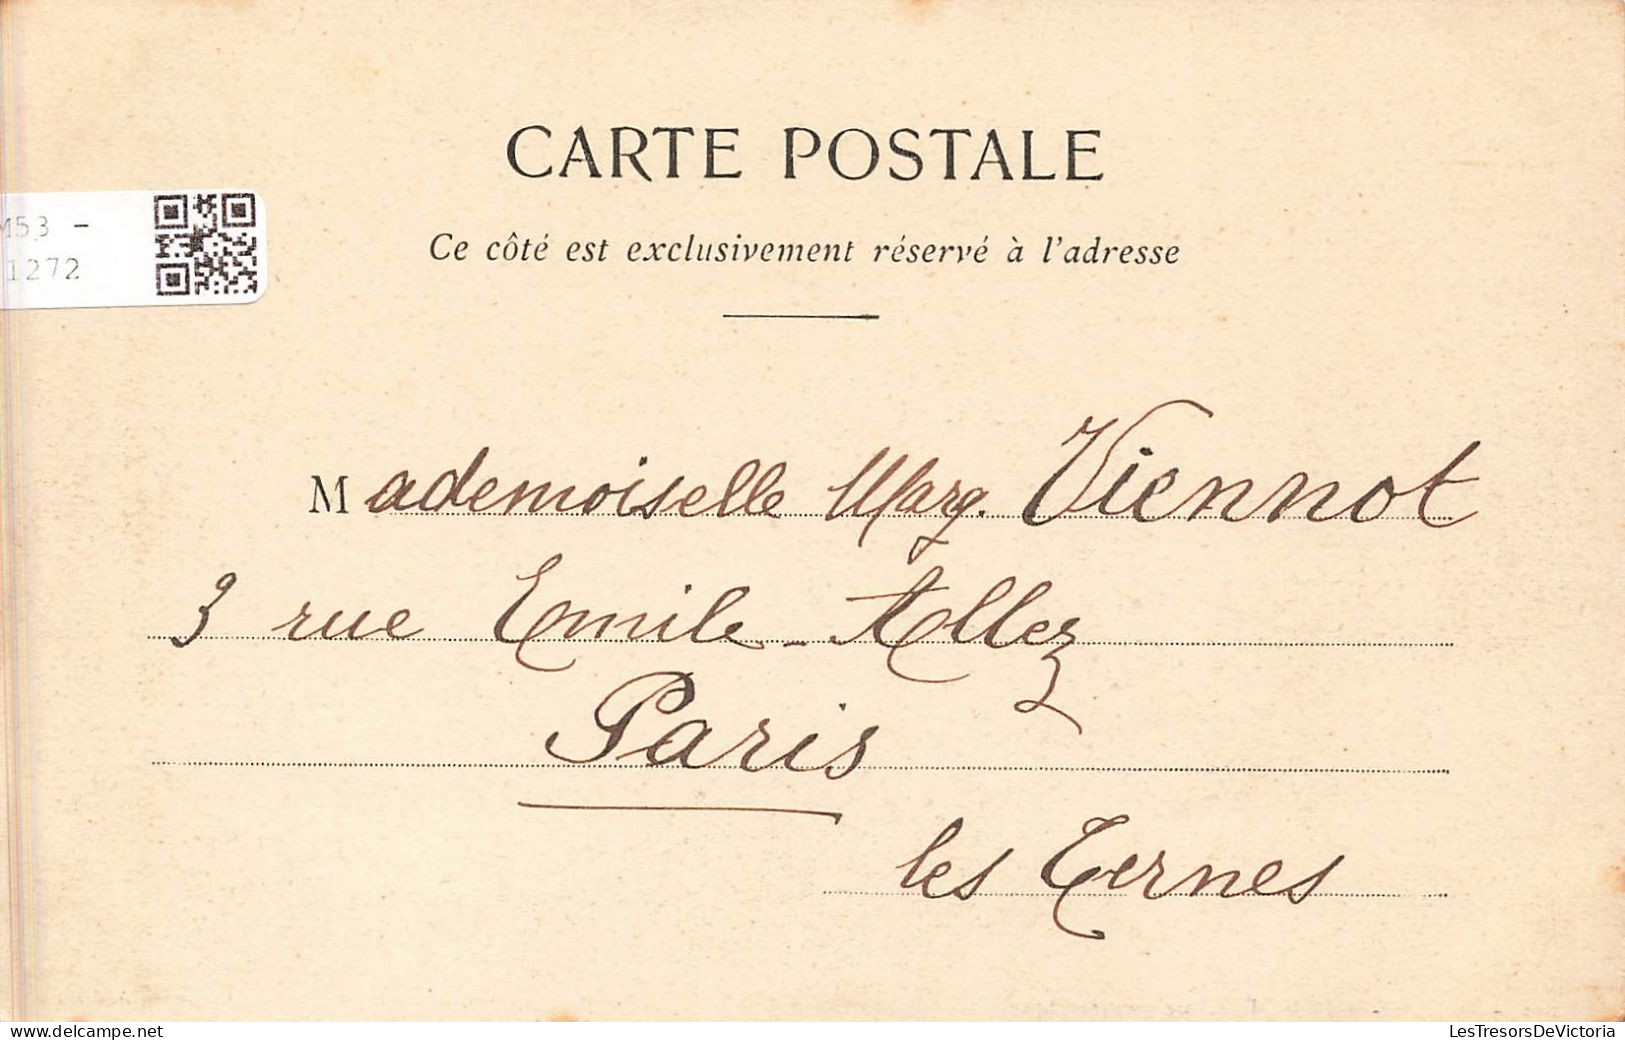 CARTE POSTALE
M53 -
1272
Ce côté est exclusivement réservé à l'adresse
Mademoiselle Marg. Viennot
3 rue Emile-Allez
Paris
les Ternes
delcampe.net
LesTresorsDeVictoria